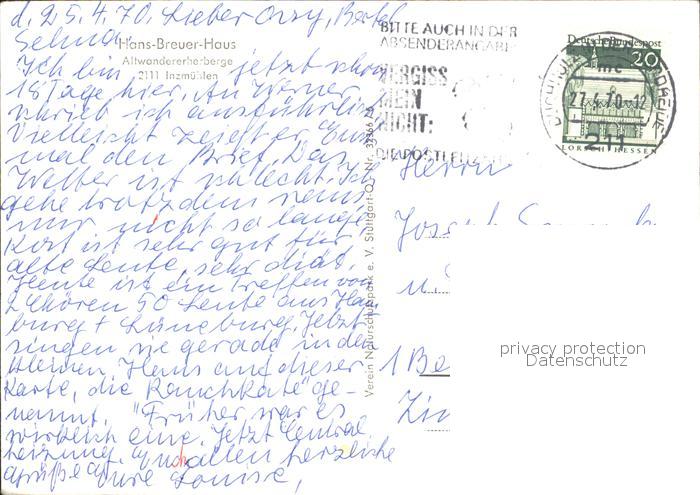 d. 25.4.70. Lieber Ossy, Bertel
Selma,
Hans-Breuer-Haus
Altwandererherberge
2111 Inzmühlen
Ich bin jetzt schon
18 Tage hier. An Werner
schrieb ich ausführlich
Vielleicht zeigt er Euch
mal den Brief. Das
Wetter ist schlecht. Ich
gehe trotzdem raus
nur nicht so lange.
Kost ist sehr gut für
alte Leute, sehr diät.
Heute ist ein Treffen von
2 Chören 50 Leute aus Ham
burg + Lüneburg. Jetzt
singen sie gerade in der
kleinen Haus auf dieser
Karte, die Rauchkate" ge-
nannt. "Früher war es
wirklich eine. Jetzt Central
heizung. Euch allen herzliche
Grüße Eure Louise,
Verein Naturschutzpark e. V. Stuttgart-O, Nr.
BITTE AUCH IN DER
ABSENDERANGABE
VERGISS
MEIN
NICHT:
DIE POSTLEITZAHL
Deutsche Bundespost
20
27.4.70-12
211
LORSCH HESSEN
Herrn
Joseph
u.
1 Be
privacy protection
Datenschutz